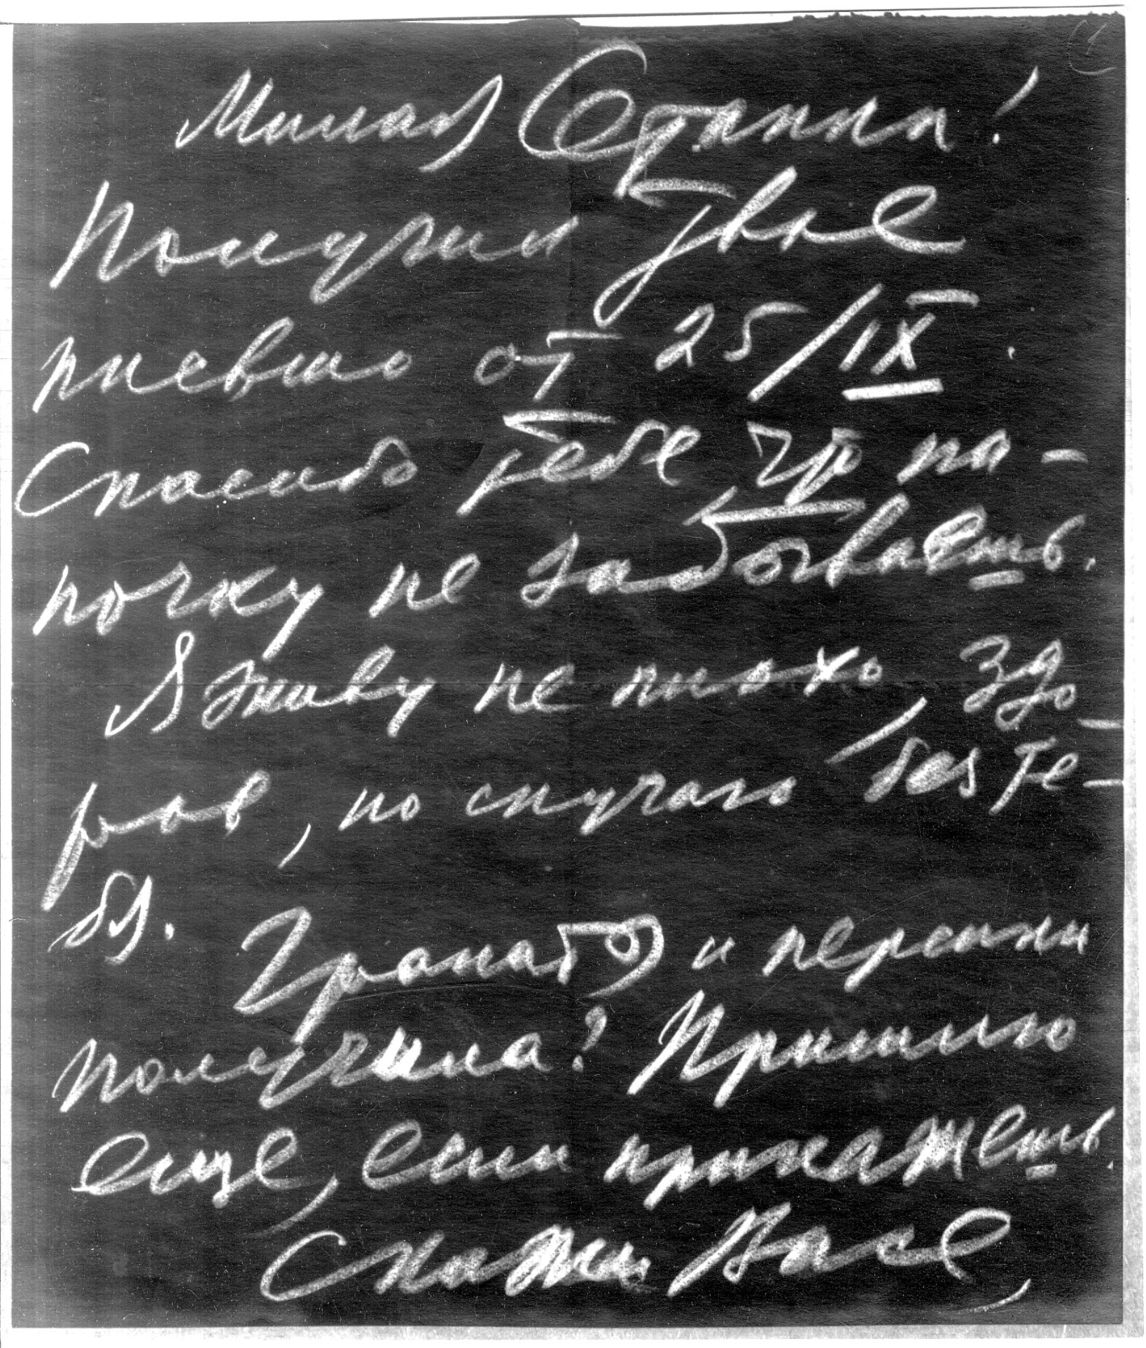 Милая Сетанка!
Получил твое
письмо от 25/IX.
Спасибо тебе, что па-
почку не забываешь.
Я живу не плохо, здо-
ров, но скучаю без те-
бя. Гранаты и персики
получила? Пришлю
еще, если прикажешь.
Скажи Васе,